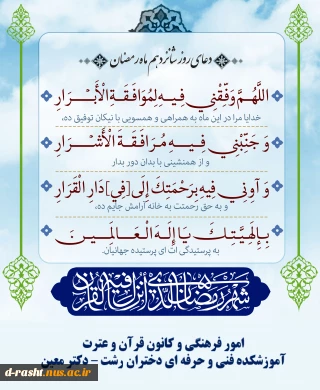 دعای روز شانزدهم ماه رمضان
اللَّهُمَّ وَفِّقْنِي فِيهِ لِمُوَافَقَةِ الْأَبْرَارِ
خدایا مرا در این ماه به همراهی و همسویی با نیکان توفیق ده،
وَ جَنِّبْنِي فِيهِ مُرَافَقَةَ الْأَشْرَارِ
و از همنشینی با بدان دور بدار
وَ آوِنِي فِيهِ بِرَحْمَتِكَ إِلَى [فِي] دَارِ الْقَرَارِ
و به حق رحمتت به خانه آرامش جایم ده،
بِإِلَهِيَّتِكَ يَا إِلَهَ الْعَالَمِينَ
به پرستیدگی ات ای پرستیده جهانیان.
شهر رمضان الذی انزل فیه القرآن
امور فرهنگی و کانون قرآن و عترت
آموزشکده فنی و حرفه ای دختران رشت - دکتر معین
d-rasht.nus.ac.ir